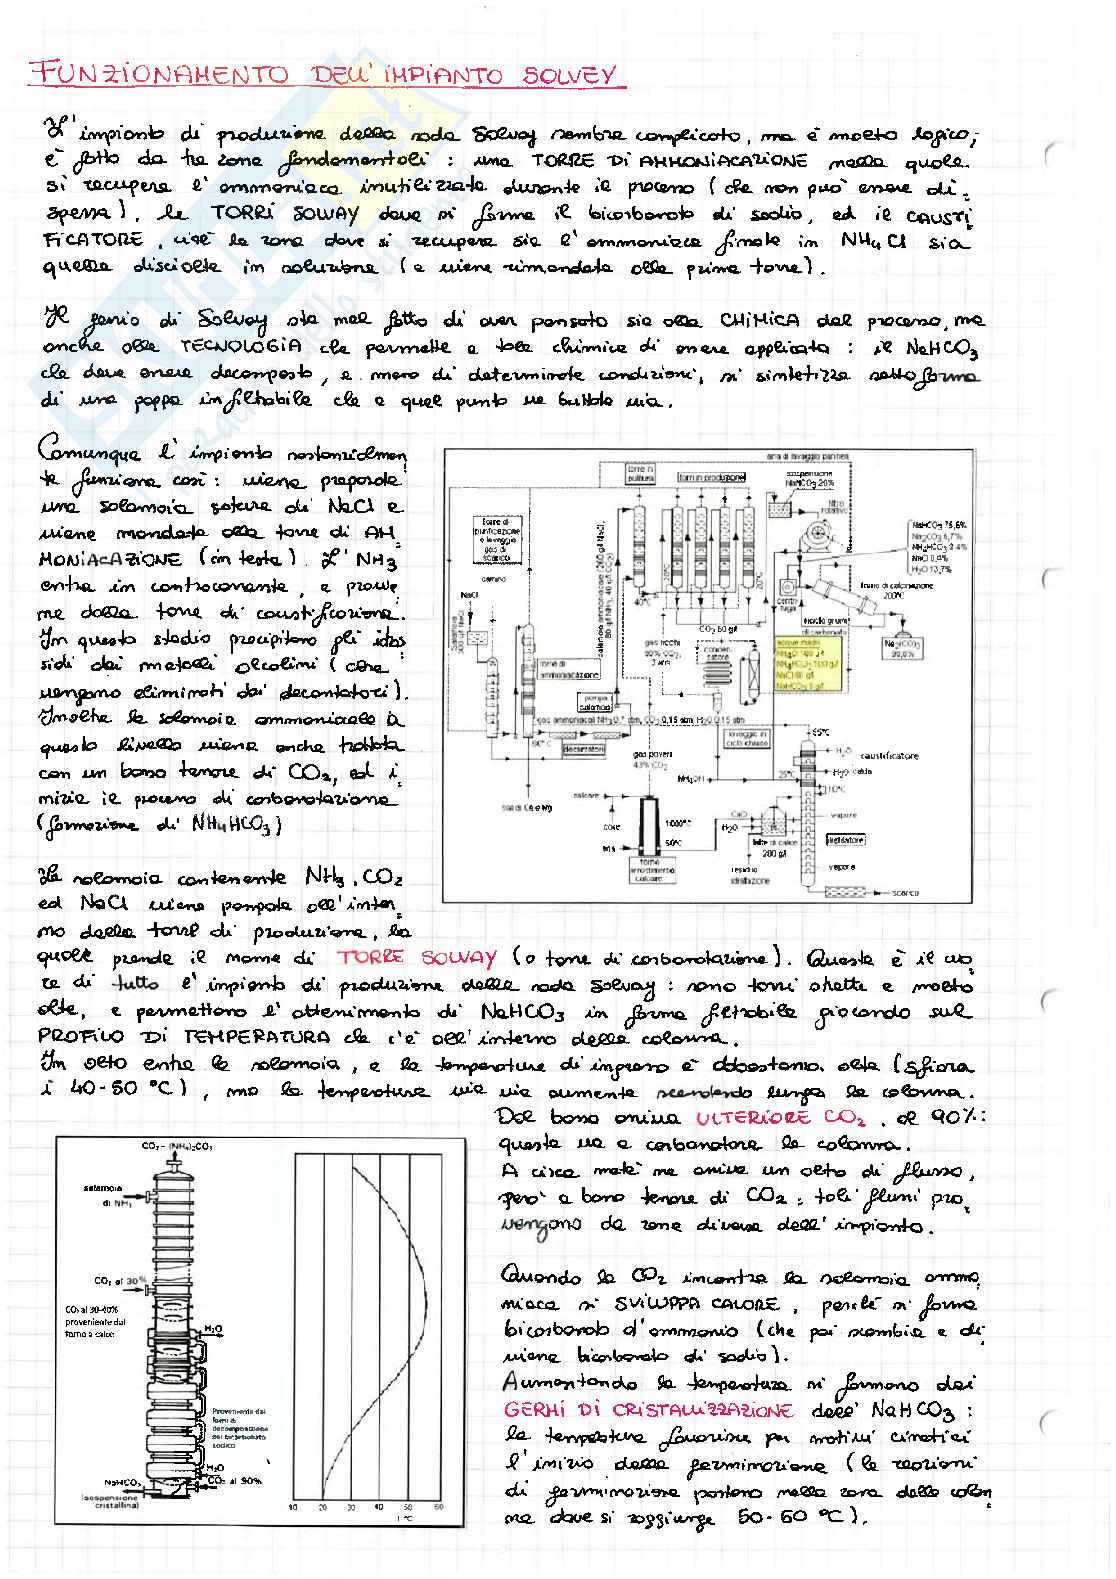 FUNZIONAMENTO DELL'IMPIANTO SOLVEY
L'impianto di produzione della soda Solvay sembra complicato, ma è molto logico;
è fatto da tre zone fondamentali : una TORRE DI AMMONIACAZIONE nella quale
si recupera l'ammoniaca inutilizzata durante il processo (che non può essere di-
spersa), le TORRI SOLVAY dove si forma il bicarbonato di sodio, ed il CAUSTI
FICATORE, cioè la zona dove si recupera sia l'ammoniaca fissata in NH4Cl sia
quella disciolta in soluzione (e viene rimandata alla prima torre).
Il genio di Solvay sta nel fatto di aver pensato sia alla CHIMICA del processo, ma
anche alla TECNOLOGIA che permette a tale chimica di essere applicata : il NaHCO3
che deve essere decomposto, a meno di determinate condizioni, si sintetizza sotto forma
di una pappa infiltrabile che a quel punto va buttata via.
Comunque l'impianto sostanzialmen
te funziona così : viene preparata
una salamoia satura di NaCl e
viene mandata alla torre di AM
MONIACAZIONE (in testa). L'NH3
entra in controcorrente, e provie
ne dalla torre di caustificazione.
In questo stadio precipitano gli idros
sidi dei metalli alcalini (che
vengono eliminati dai decantatori).
Inoltre la salamoia ammoniacale a
questo livello viene anche trattata
con un basso tenore di CO2, ed i
nizia il processo di carbonatazione
(formazione di NH4HCO3)
aria di lavaggio pan filtri
torre in pulitura
torri in produzione
sospensione NaHCO3 20%
filtro rotativo
NaHCO3 75,6%
Na2CO3 6,7%
NH4HCO3 3,4%
NaCl 0,4%
H2O 13,7%
torre di purificazione e lavaggio gas di scarico
camino
NaCl
salamoia ammoniacale (260 g/l NaCl, 80 g/l NH3, 40 g/l CO2)
40°C
20°C
centrifuga
forno di calcinazione 200°C
CO2 60 g/l
riciclo grumi di carbonato
Na2CO3 99,8%
gas ricchi 90% CO2, 3 atm
torre di ammoniacazione
pompa salamoia
60°C
decantatori
lavaggio in ciclo chiuso
gas poveri 43% CO2
NH4OH
55°C
H2O
caustificatore
25°C
H2O calda
110°C
sali di Ca e Mg
calcare
coke
aria
1000°C
50°C
forno arrostimento calcare
CaO
H2O
latte di calce 280 g/l
residuo idratazione
vapore
distillatore
vapore
scarico
La salamoia contenente NH3, CO2
ed NaCl viene pompata all'inter
no della torre di produzione, la
quale prende il nome di TORRE SOLVAY (o torre di carbonatazione). Questa è il cuo
re di tutto l'impianto di produzione della soda Solvay : sono torri strette e molto
alte, e permettono l'ottenimento di NaHCO3 in forma filtrabile giocando sul
PROFILO DI TEMPERATURA che c'è all'interno della colonna.
In alto entra la salamoia, e la temperatura di ingresso è abbastanza alta (sfiora
i 40-50 °C), ma la temperatura via via aumenta scendendo lungo la colonna.
Dal basso arriva ULTERIORE CO2, al 90% :
questa va a carbonatare la colonna.
A circa metà ne arriva un altro di flusso,
però a basso tenore di CO2 ; tali flussi pro
vengono da zone diverse dell'impianto.
Quando la CO2 incontra la salamoia ammo
niaca si SVILUPPA CALORE, perché si forma
bicarbonato d'ammonio (che poi scambia e di
viene bicarbonato di sodio).
Aumentando la temperatura si formano dei
GERMI DI CRISTALLIZZAZIONE dell'NaHCO3 :
la temperatura favorisce per motivi cinetici
l'inizio della germinazione (le reazioni
di germinazione partono nella zona della colon
na dove si raggiunge 50-60 °C).
CO2 - (NH4)2CO3
salamoia di NH3
CO2 al 30%
CO2 al 30-40% proveniente dal forno a calce
H2O
Proveniente dai forni di decomposizione del bicarbonato sodico
H2O
CO2 al 90%
NaHCO3
(sospensione cristallina)
10 20 30 40 50 60
T °C